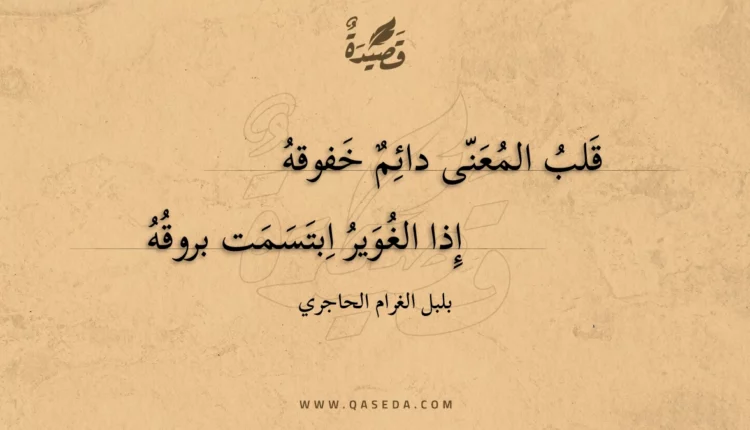 قَصِيْدَةٌ
قَلبُ المُعَنّى دائِمٌ خَفوقهُ
إِذا الغُوَيرُ اِبتَسَمَت بروقُهُ
بلبل الغرام الحاجري
WWW.QASEDA.COM